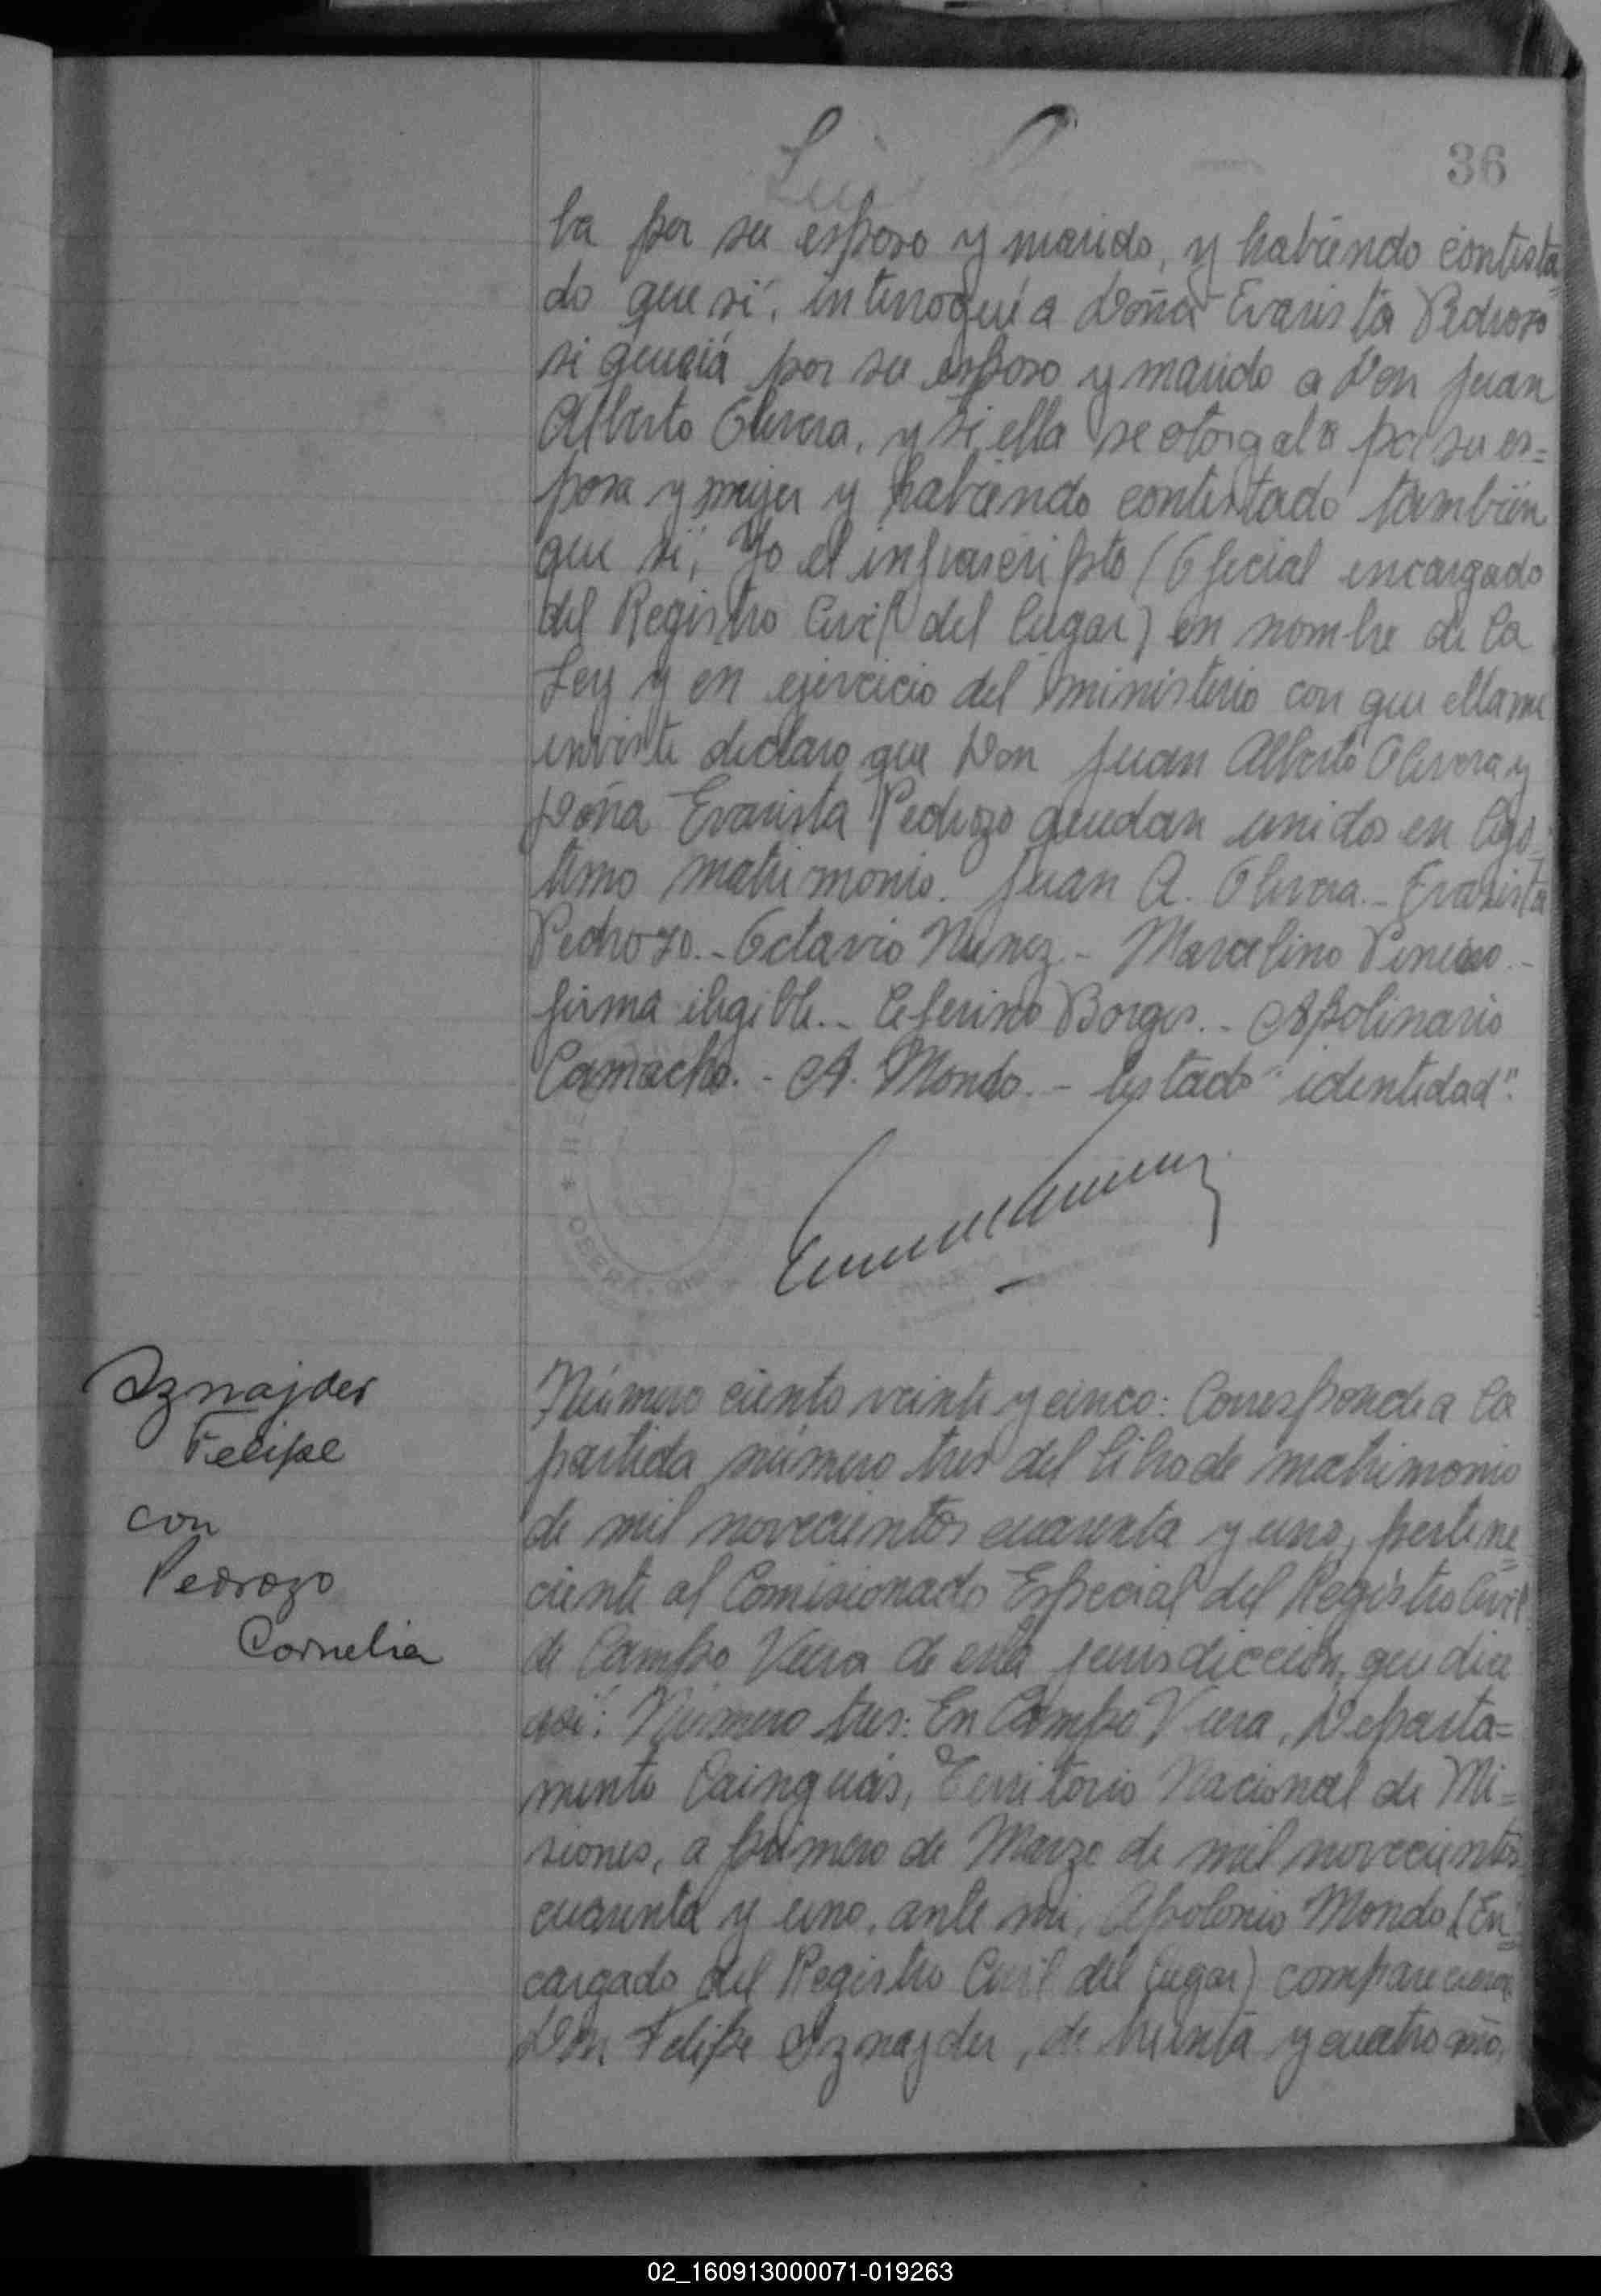 36
ba por su esposo y marido, y habiendo contesta=
do que sí, interrogué a Doña Evarista Pedrozo
si quería por su esposo y marido a Don Juan
Alberto Olivera, y si ella se otorgaba por su es=
posa y mujer y habiendo contestado también
que sí, Yo el infrascripto (Oficial encargado
del Registro Civil del lugar) en nombre de la
Ley y en ejercicio del ministerio con que ella me
inviste declaro que Don Juan Alberto Olivera y
Doña Evarista Pedrozo quedan unidos en legí=
timo matrimonio. Juan A. Olivera.- Evarista
Pedrozo.- Octavio Nuñez.- Marcelino
firma ilegible.- Ceferino Borges.- Apolinario
Camacho.- A. Mondo.- "identidad".
OBERA
Sznajder
Felipe
con
Pedrozo
Cornelia
Número ciento veinte y cinco: Corresponde a la
partida número tres del libro de matrimonio
de mil novecientos cuarenta y uno, pertene=
ciente al Comisionado Especial del Registro Civil
de Campo Viera de esta jurisdicción, que dice
así: Número tres: En Campo Viera, Departa=
mento Cainguás, Territorio Nacional de Mi=
siones, a primero de Marzo de mil novecientos
cuarenta y uno, ante mi, Apolonio Mondo (En=
cargado del Registro Civil del lugar) comparecieron
Don Felipe Sznajder, de treinta y cuatro años,
02_160913000071-019263